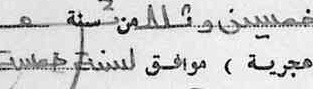 خمسين وثلا من سنة
هجرية ) موافق لسنة خمسة